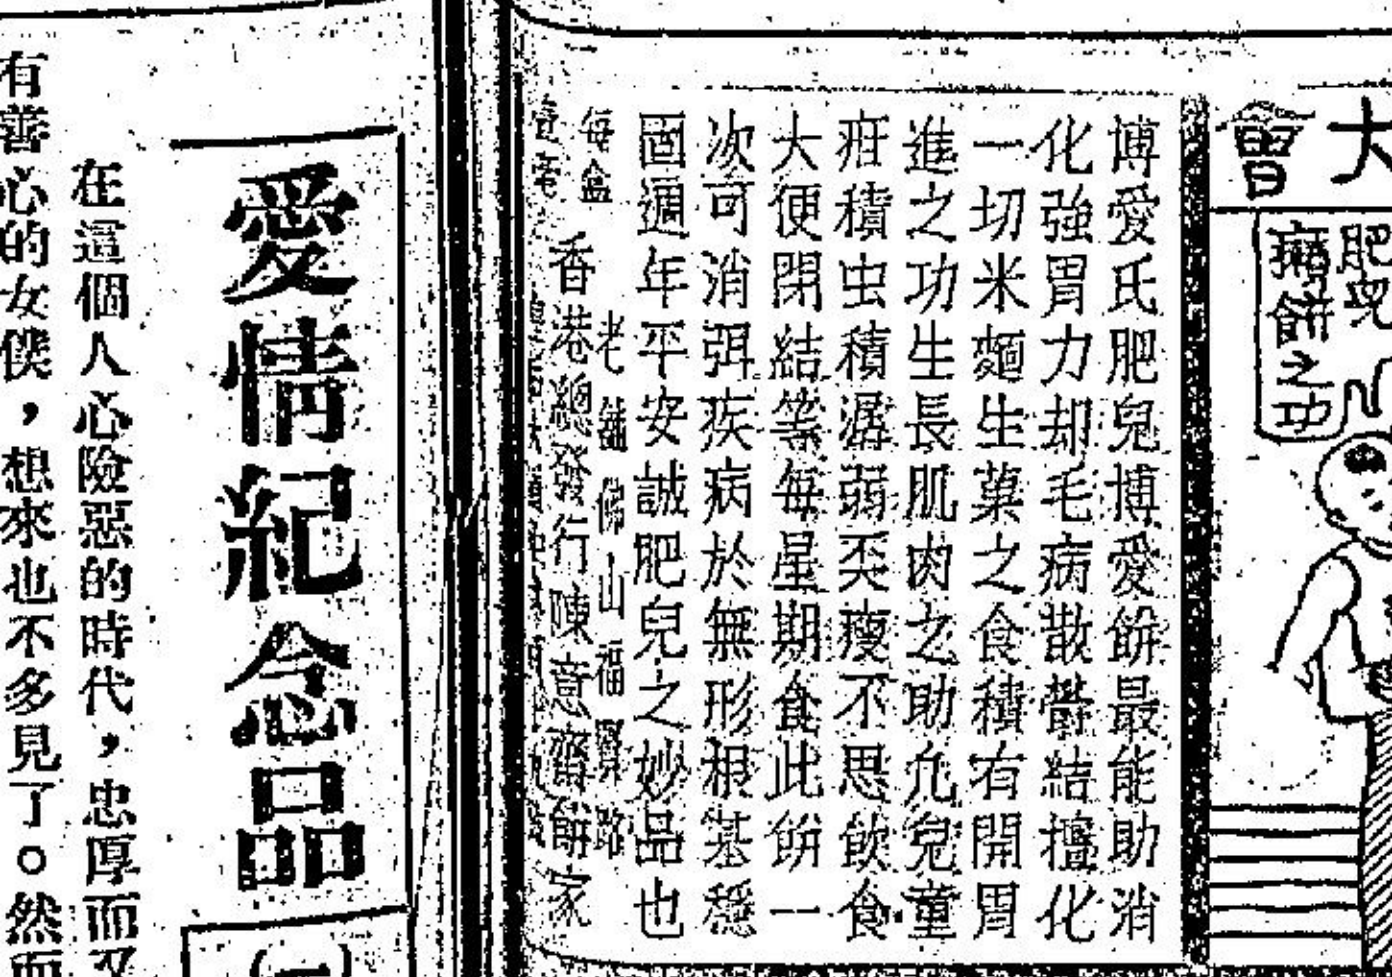 大會
肥兒
之功
博愛氏肥兒博愛餅最能助消
化強胃力却毛病散鬱結擅化
一切米麵生菓之食積有開胃
進之功生長肌肉之助凢兒童
疳積虫積潺弱瘦不思飲食
大便閉結等每星期食此餅一
次可消弭疾病於無形根基穩
固週年平安誠肥兒之妙品也
每盒
壹毫
老舖佛山福賢路
香港總發行陳意齋餅家
愛情紀念品
(一)
在這個人心險惡的時代，忠厚而又
有善心的女僕，想來也不多見了。然而